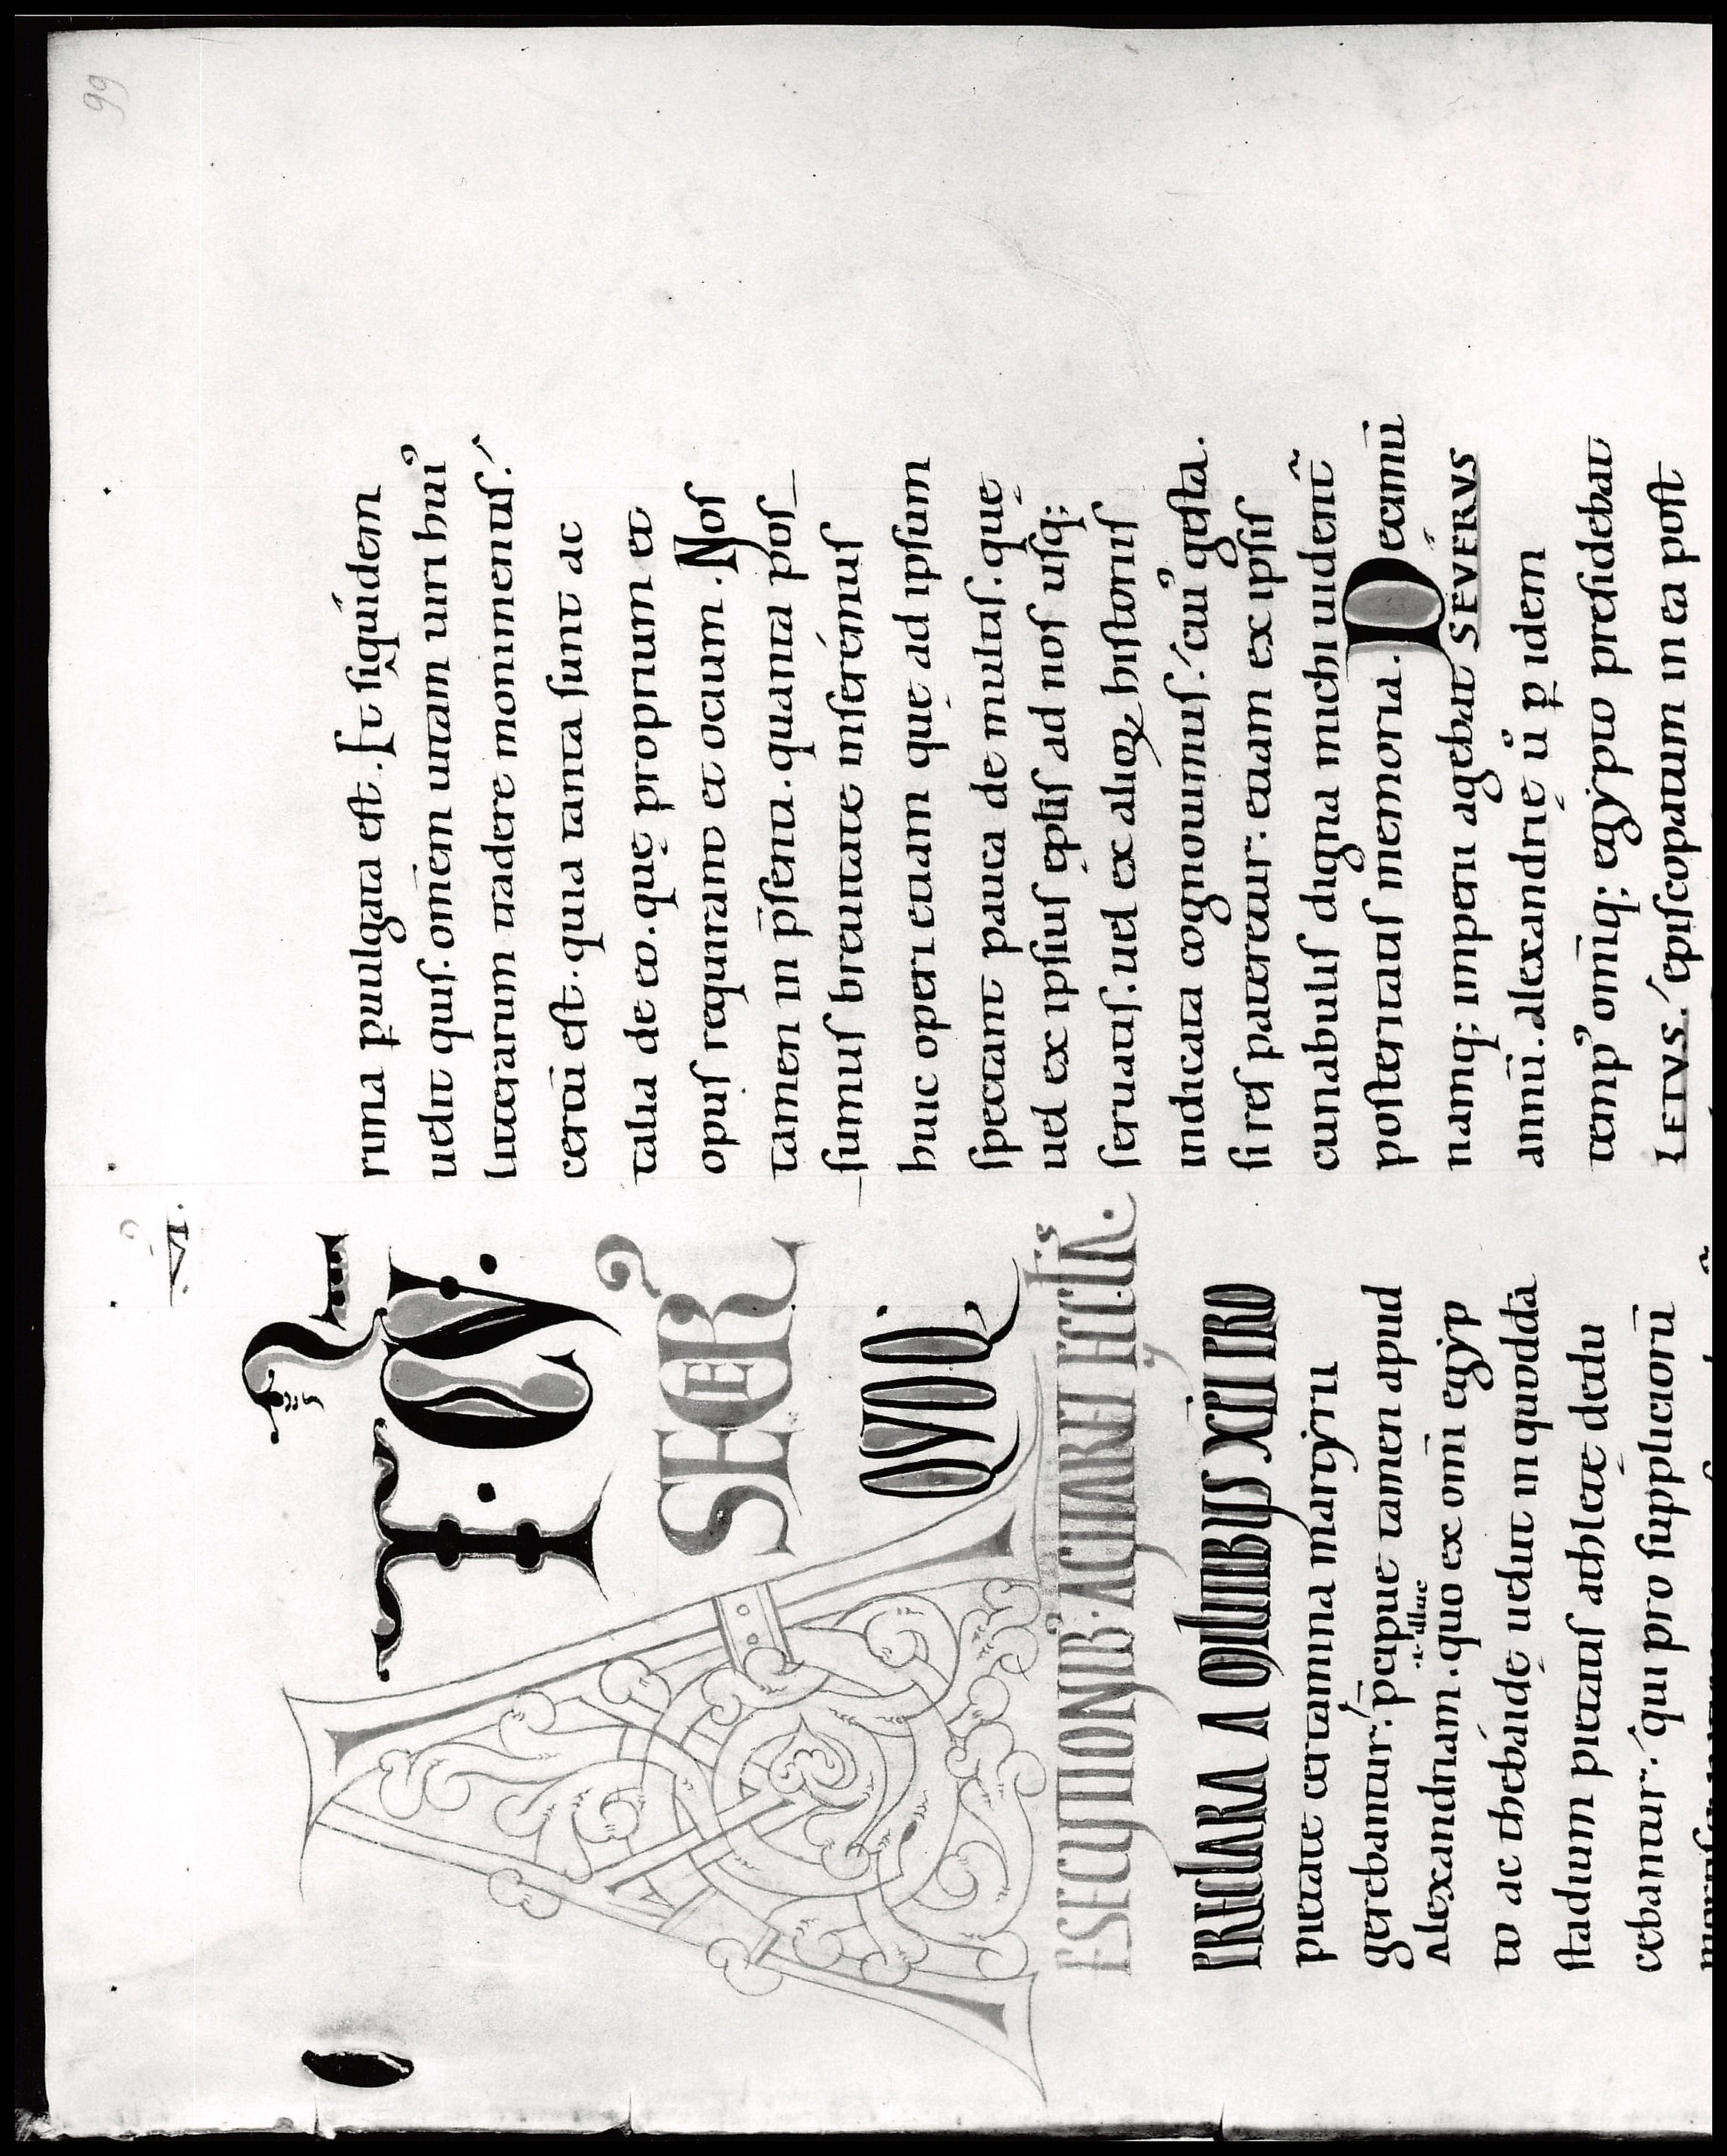 99
·VI·
AT · CV̄ ·
SEVERꝰ
QVOQ·
PESECUTIONIBꝰ· AGITARET ECCLAS·
PRECLARA A OMNIBUS XPĪ PRO
pietate certamina martyrii
gerebantur·́ p̄cipue tamen apud
illuc
Alexandriam . quo ex om̄i egyp
to ac thebáidę uelut in quoddā
stadium pietatis athletę dedu
cebantur·́ qui pro suppliciorū
rima ꝑuulgata est . Et siquídem
uelit quis . om̄em uitam uiri huiꝰ
litterarum tradere monimentis·́
certū est · quia tanta sunt ac
talia de eo . quę proprium et
opus requirant et ocium . Nos
tamen in p̄senti . quanta pos
sumus breuitate inserémus
huic operi etiam quę ad ipsum
spectant pauca de multis . quę
uel ex ipsius ep̄lis ad nos usq;
seruatis . uel ex alioꝝ historiis
indicata cognouimus·́ cuiꝰ gesta .
si res pateretur · etiam ex ipsis
cunabulis digna michi uident̄
posteritatis memoria . Decimū
namq; imperii agebat SEVERVS
annū . alexandrię ů ꝑ idem
tempꝰ om̄iq; egypto presidebat
LETVS ·́ episcopatum in ea post